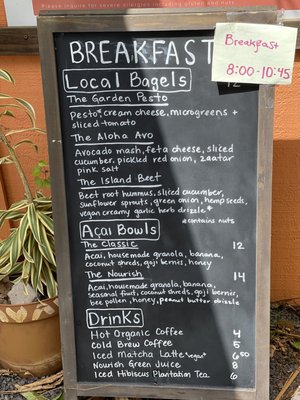 Please inquire for severe allergies including gluten and nuts
BREAKFAST
Breakfast
8:00-10:45
Local Bagels 12
The Garden Pesto
Pesto*, cream cheese, microgreens +
sliced tomato
The Aloha Avo
Avocado mash, feta cheese, sliced
cucumber, pickled red onion, zaatar
pink salt
The Island Beet
Beet root hummus, sliced cucumber,
sunflower sprouts, green onion, hemp seeds,
vegan creamy garlic herb drizzle*
*contains nuts
Açai Bowls
The Classic 12
Acai, housemade granola, banana,
coconut shreds, goji berries, honey
The Nourish 14
Acai, housemade granola, banana,
seasonal fruits, coconut shreds, goji berries,
bee pollen, honey, peanut butter drizzle
Drinks
Hot Organic Coffee 4
Cold Brew Coffee 5
Iced Matcha Latte *vegan* 6.50
Nourish Green Juice 8
Iced Hibiscus Plantation Tea 6